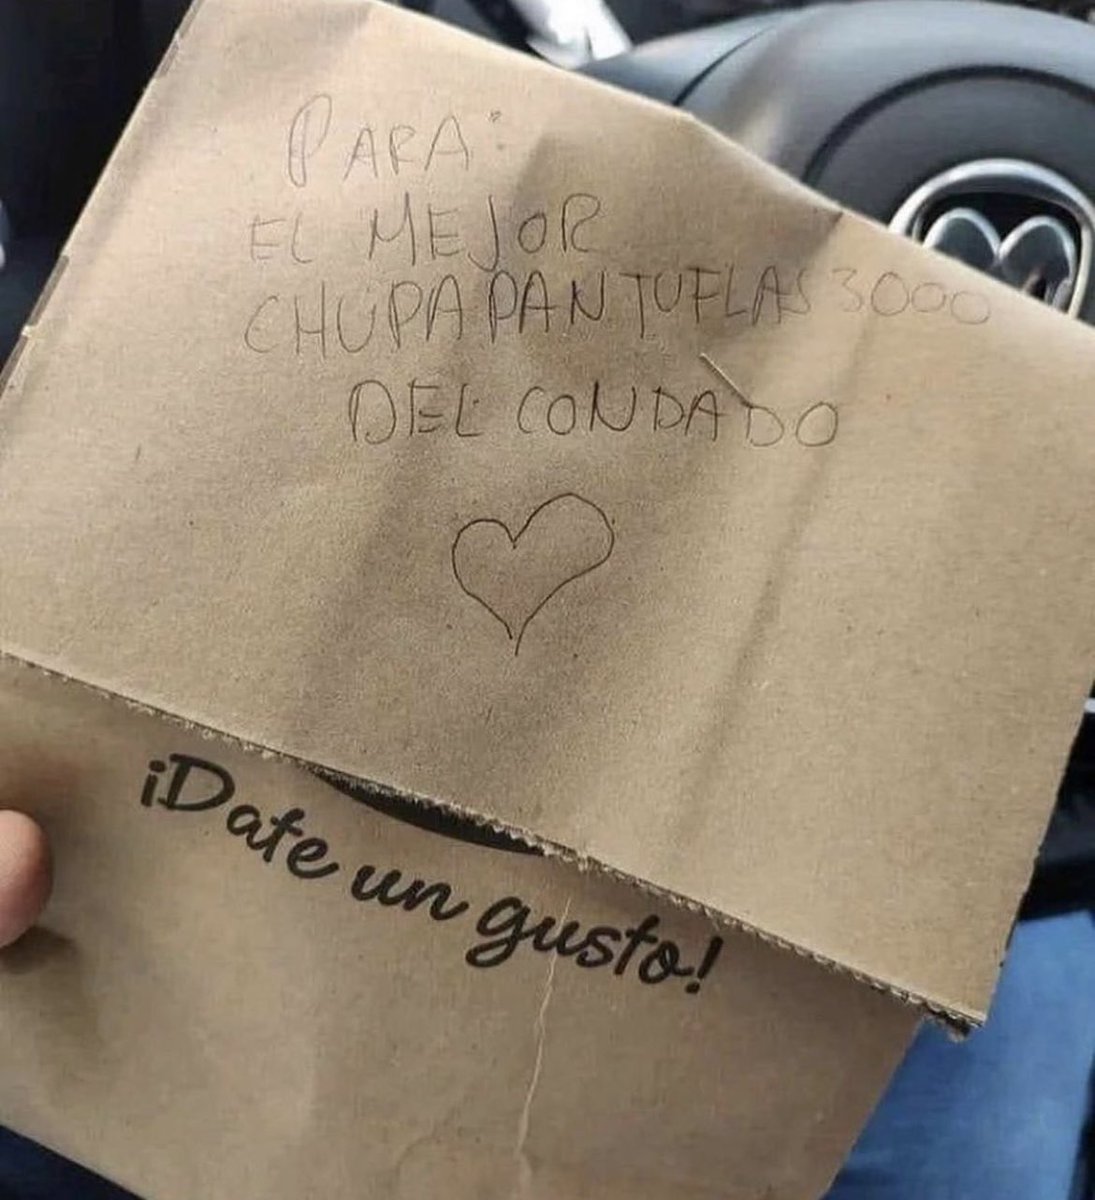 PARA:
EL MEJOR
CHUPAPANTUFLAS3000
DEL CONDADO
¡Date un gusto!